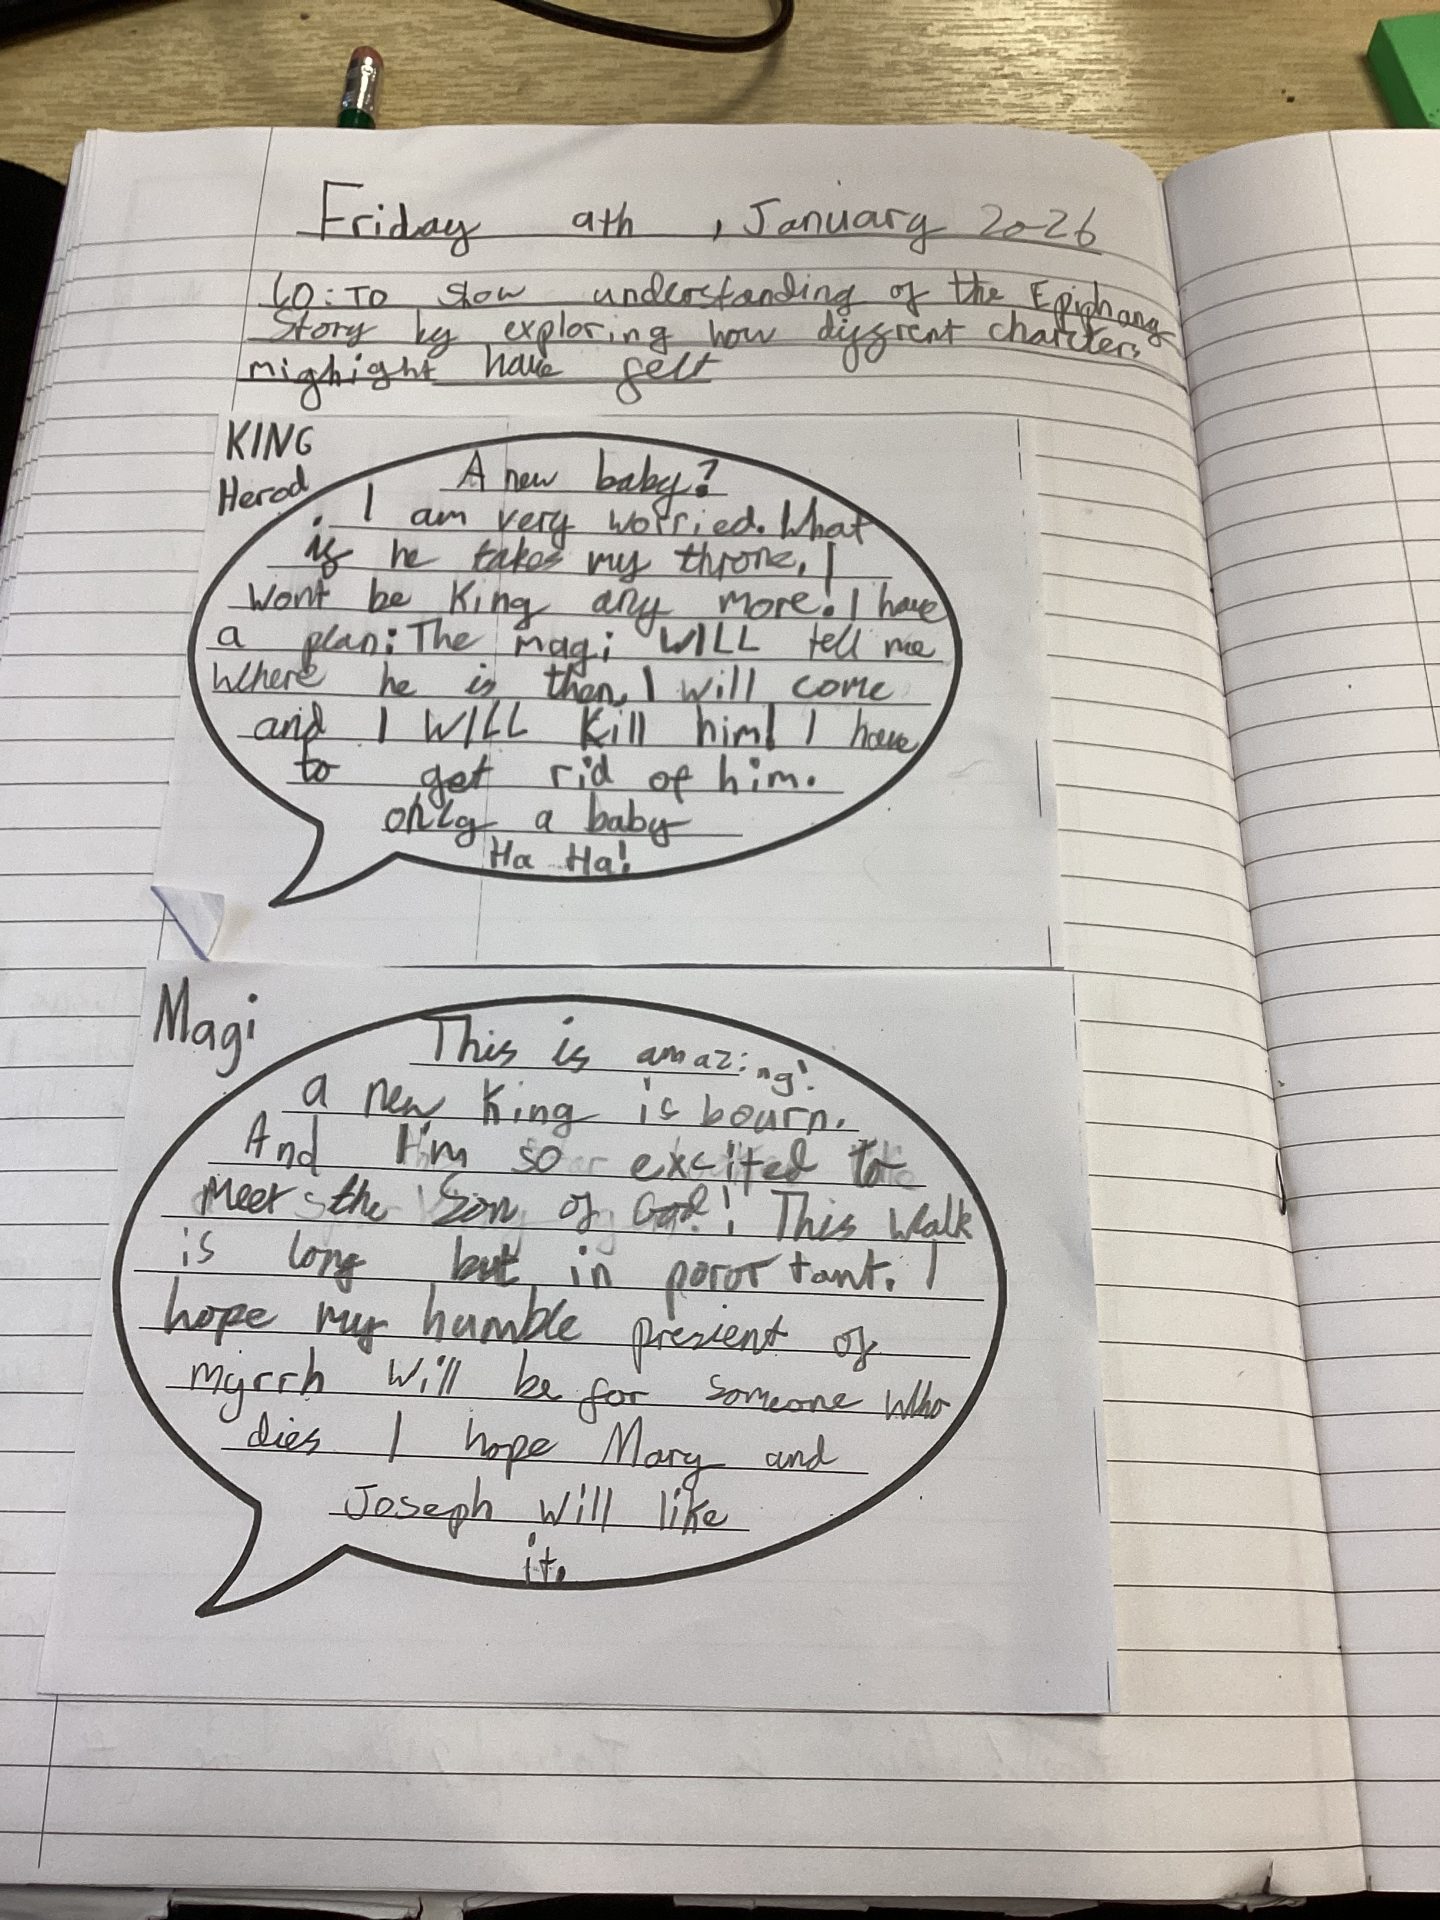 Friday 9th, January 2026
LO: To show understanding of the Epiphany
Story by exploring how diffrent charcters
mighight have felt
KING
Herod
A new baby?
I am very worried. What
if he takes my throne, I
wont be King any more! I have
a plan: The magi WILL tell me
Where he is then, I will come
and I WILL Kill him! I have
to get rid of him.
only a baby
Ha Ha!
Magi
This is amazing!
a new King is bourn.
And I'm so excited to
Meet the Son of God! This walk
is long but in porortant. I
hope my humble presient of
myrrh will be for someone who
dies I hope Mary and
Joseph will like
it.